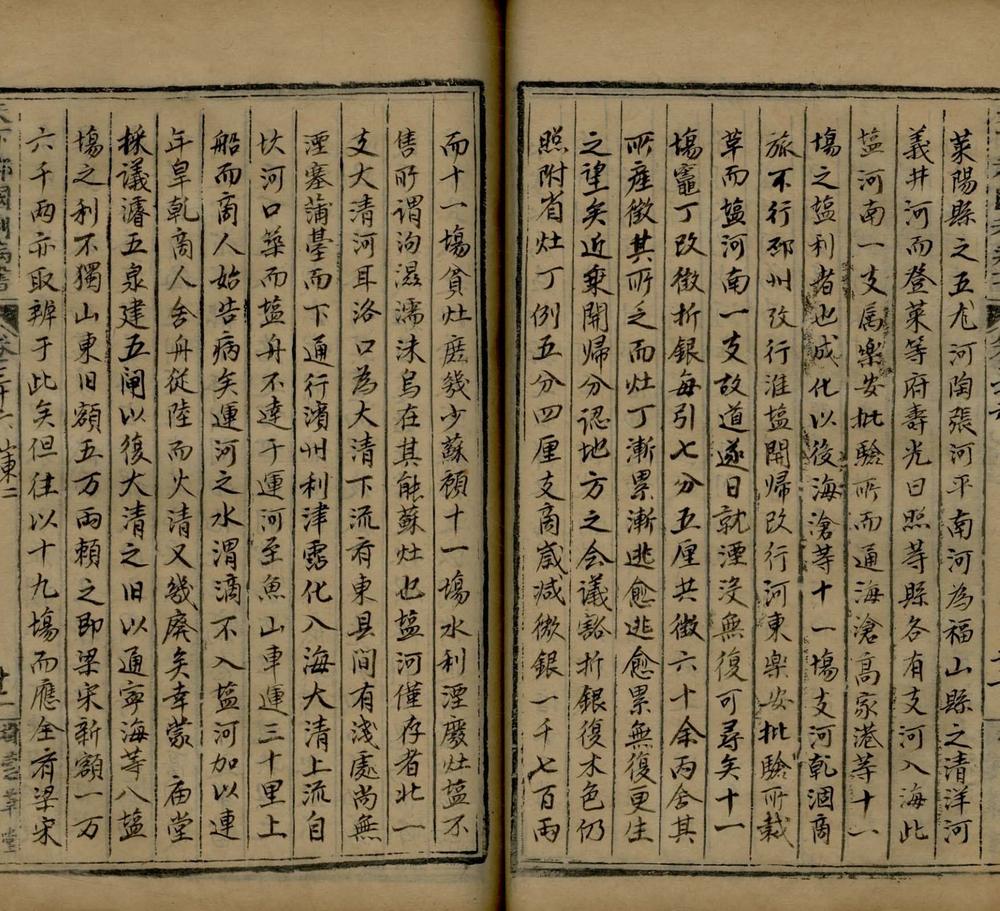 萊陽縣之五尨河陶張河平南河為福山縣之清洋河
義井河而登萊等府壽光日照等縣各有支河入海此
塩河南一支属樂安批驗所而通海滄高家港等十一
塲之塩利者也成化以後海滄等十一塲支河乾涸商
旅不行邳州攺行淮塩開歸攺行河東樂安批驗所裁
草而塩河南一支故道遂日就湮没無復可尋矣十一
塲竈丁改徵折銀每引七分五厘共徵六十余两舍其
所産徵其所乏而灶丁漸累漸逃愈逃愈累無復更生
之望矣近乘開歸分認地方之会議豁折銀復本色仍
照附省灶丁例五分四厘支商歲减徵銀一千七百两
而十一塲貧灶庶幾少蘇顧十一塲水利湮廢灶塩不
售所謂泃濕濡沫烏在其能蘇灶也塩河僅存者北一
支大清河耳洛口為大清下流有東县間有淺處尚無
湮塞蒲䑓而下通行濱州利津霑化入海大清上流自
坎河口築而塩舟不達于運河至魚山車運三十里上
船而商人始告病矣運河之水渭滴不入塩河加以連
年旱乾商人舍舟從陸而火清又幾廢矣幸蒙　庙堂
採議濬五泉建五闸以復大清之旧以通寧海等八塩
塲之利不獨山東旧額五万两頼之即梁宋新額一万
六千两亦取辨于此矣但往以十九塲而應全有梁宋
天下郡國利病書
山東二